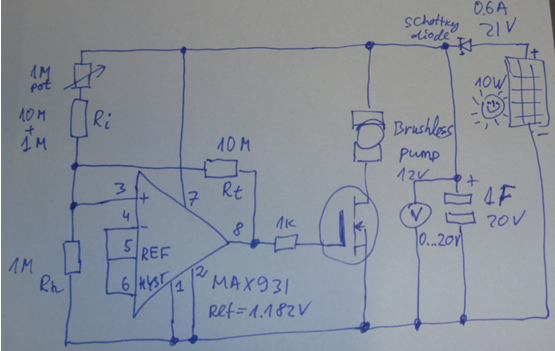 0.6A
21V
Schottky
diode
+
1M
pot
10M
+
1M
Ri
10W
-
10M
Rt
Brushless
pump
12V
+
3
+
7
4
-
8
1K
1F
20V
V
0...20V
5
REF
1M
Rh
6
HYST
1
2
MAX931
Ref=1.182V